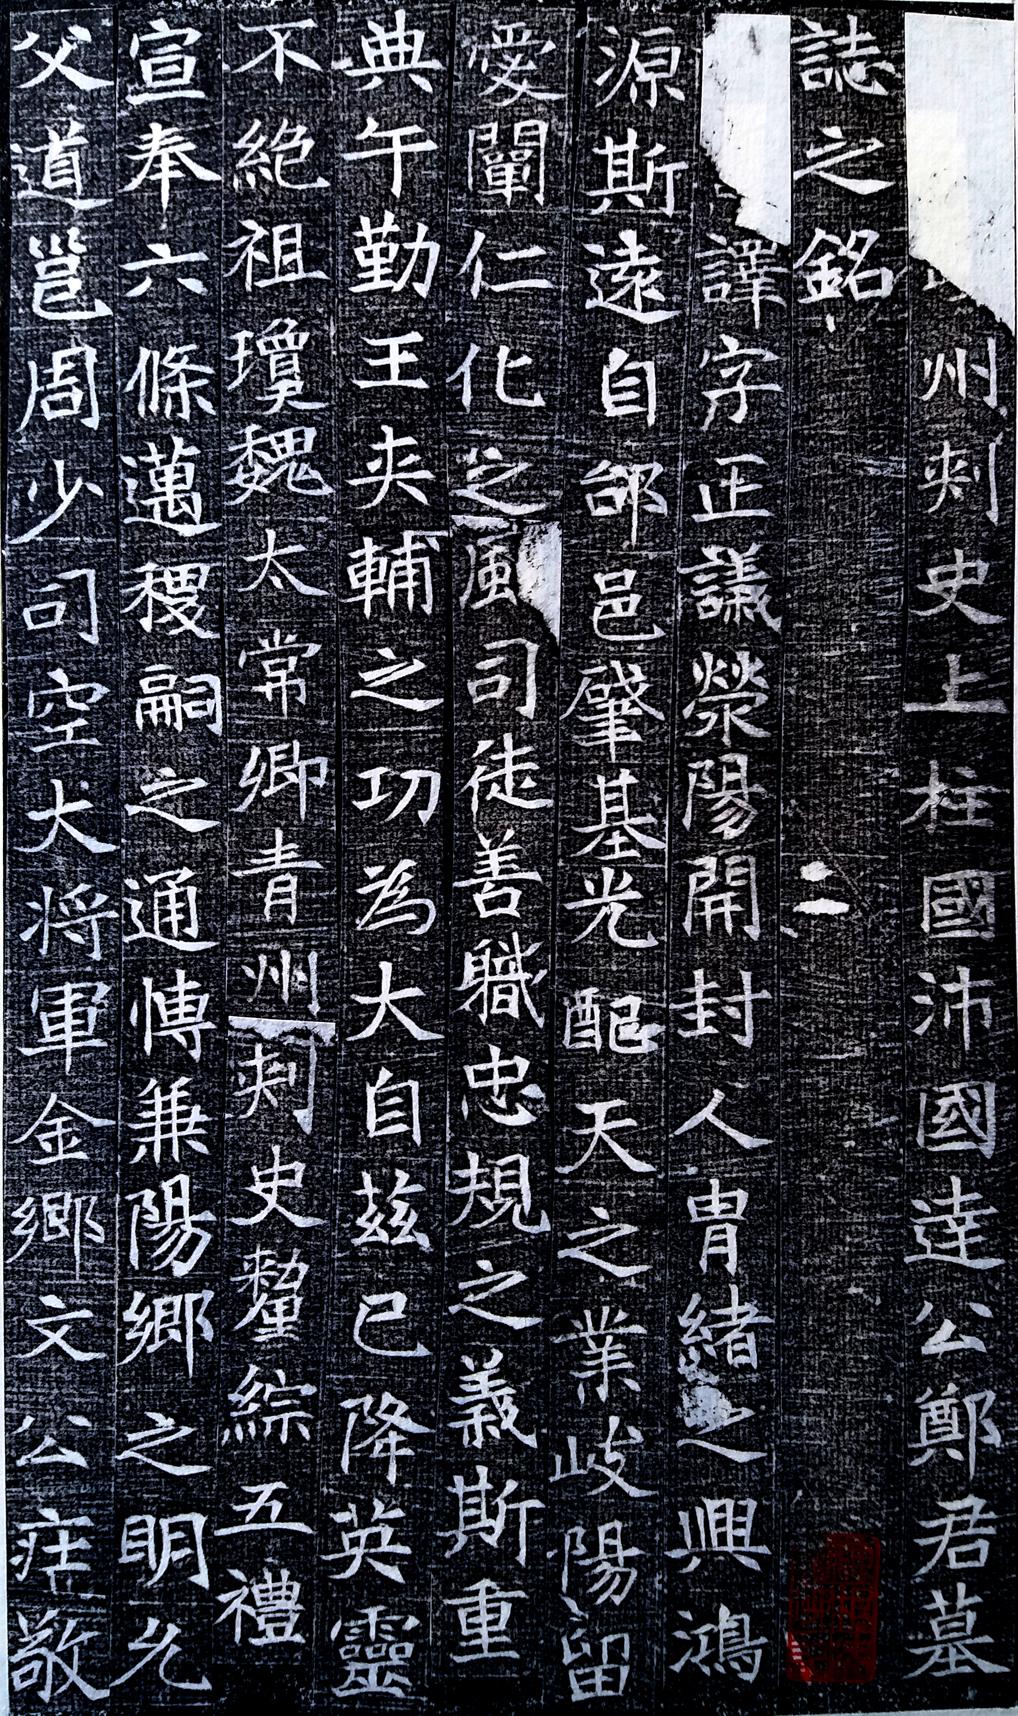 州刺史上柱國沛國達公鄭君墓
誌之銘
譯字正議滎陽開封人胄緒之興鴻
源斯遠自邰邑肇基光配天之業岐陽留
愛闡仁化之風司徒善職忠規之義斯重
典午勤王夾輔之功為大自茲已降英靈
不絕祖瓊魏太常卿青州刺史釐綜五禮
宣奉六條邁稷嗣之通博兼陽鄉之明允
父道邕周少司空大將軍金鄉文公莊敬